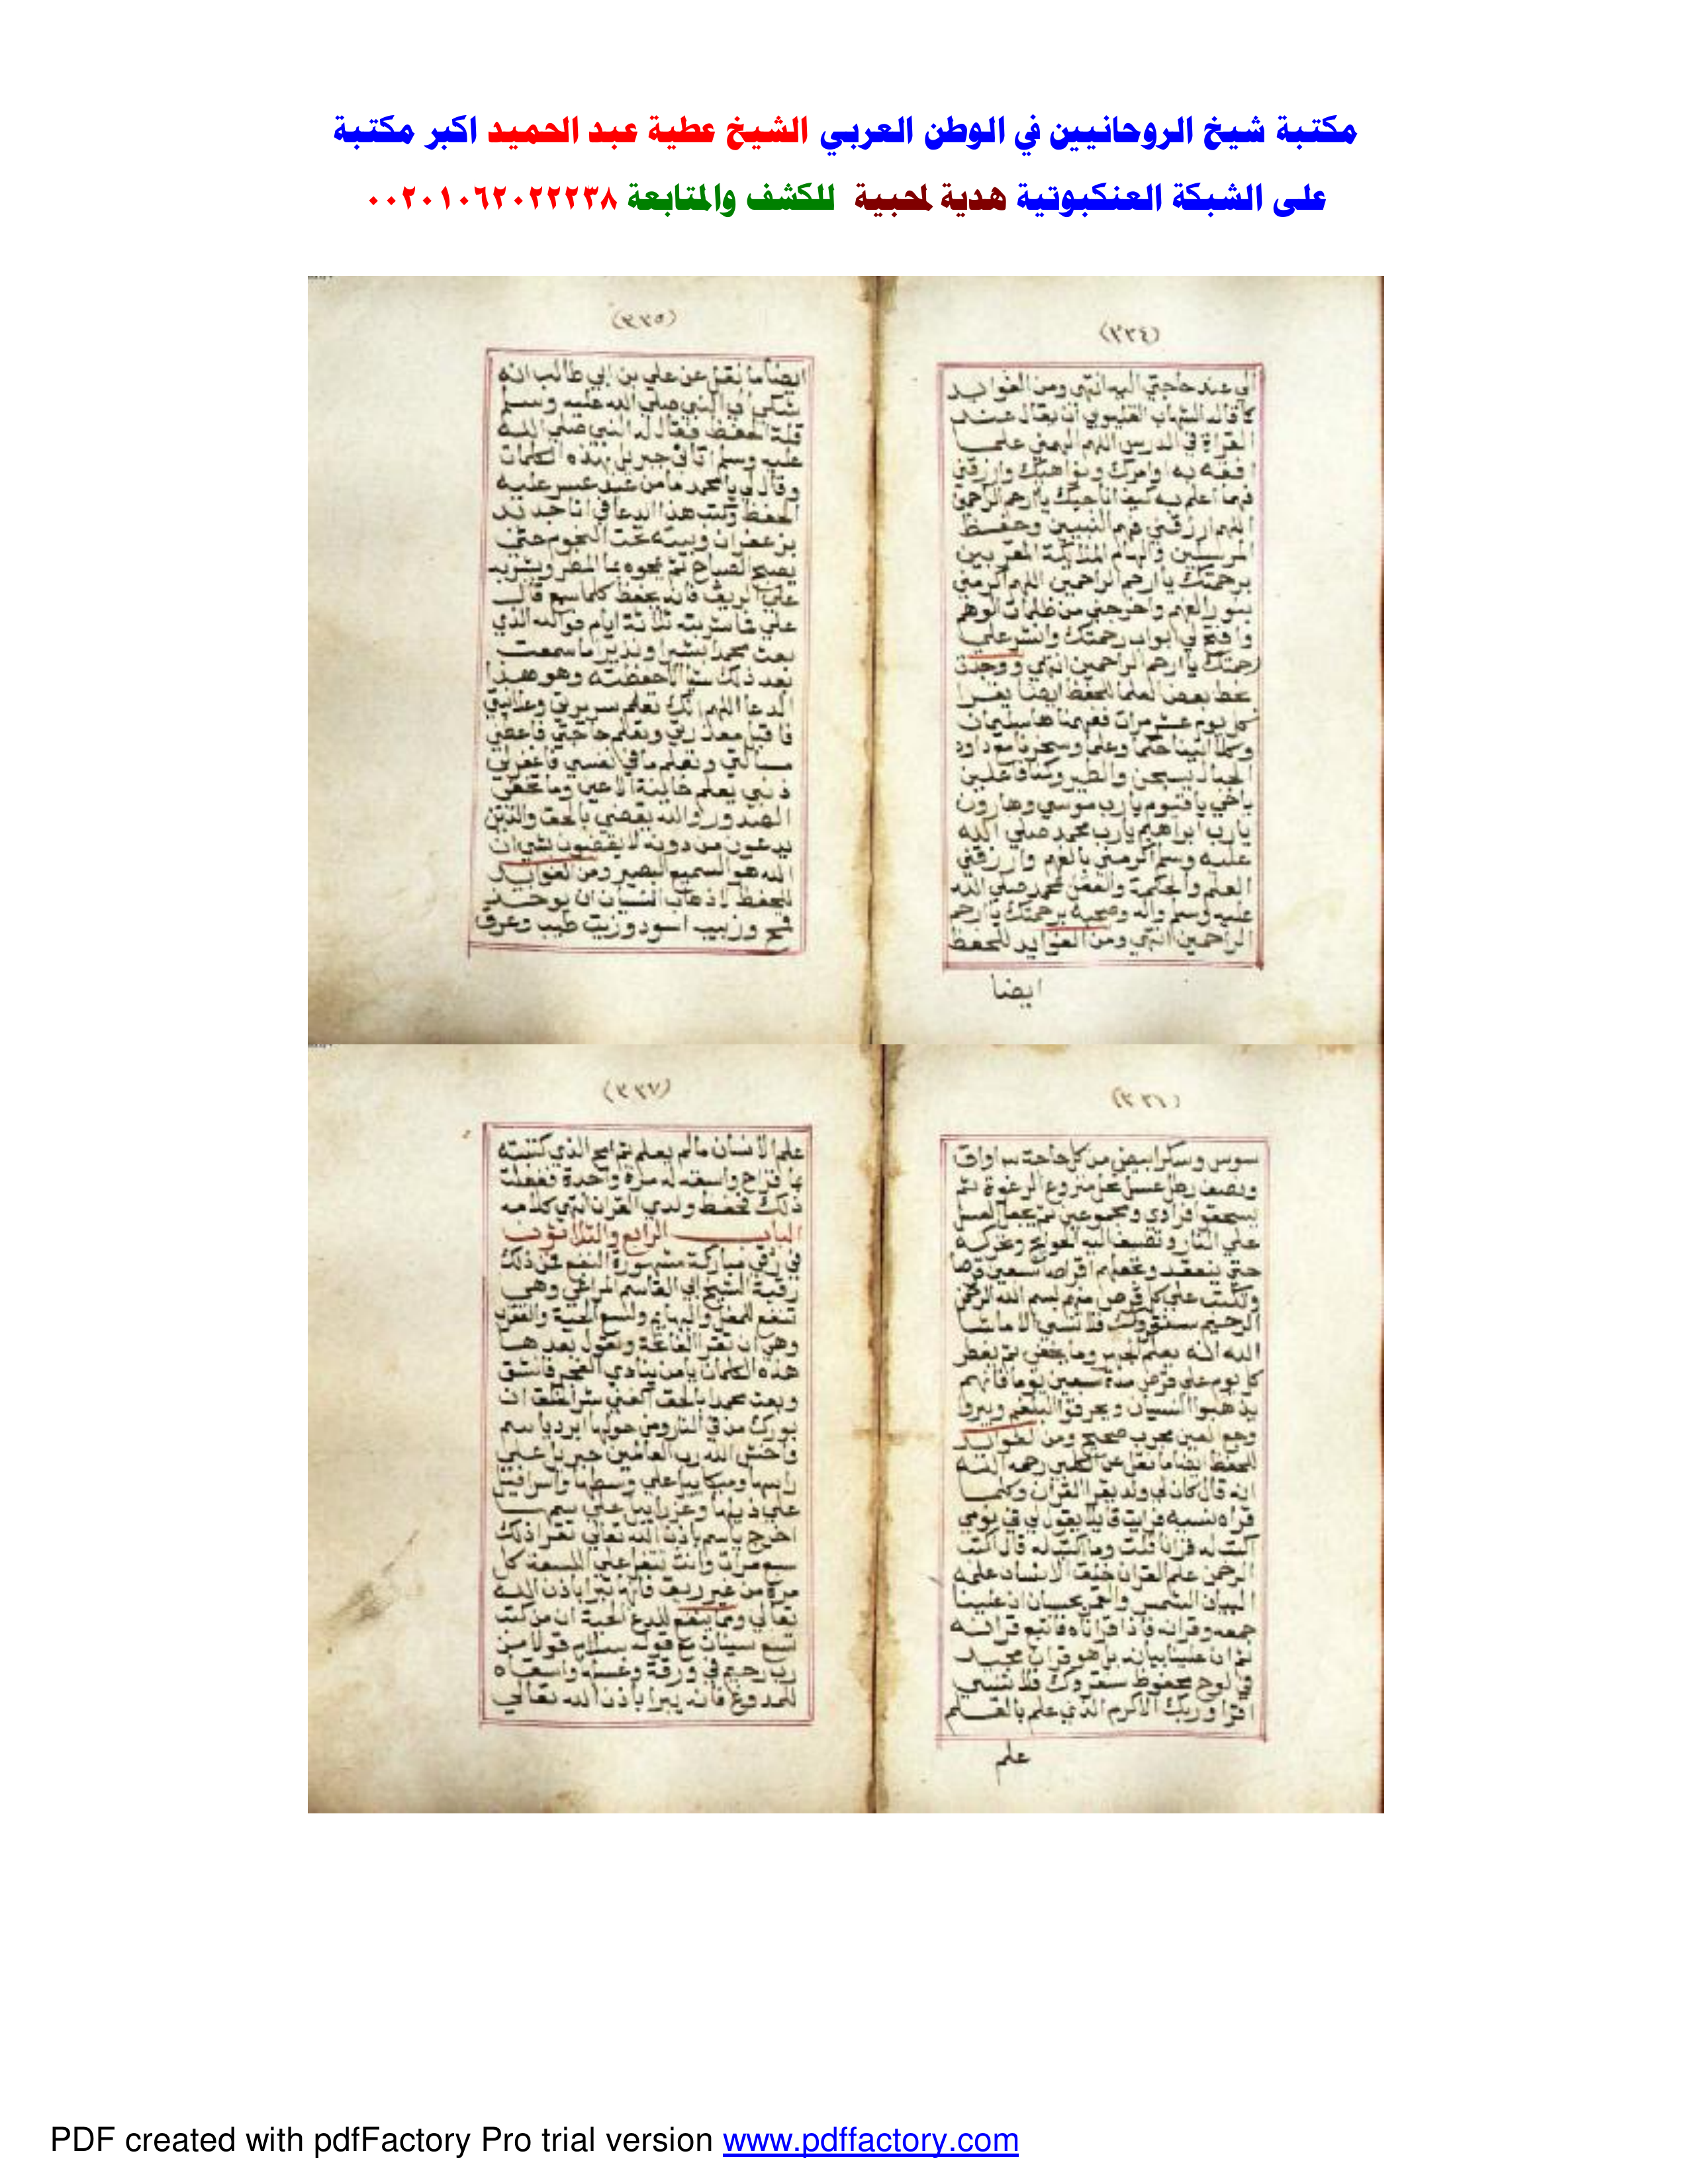 مكتبة شيخ الروحانيين في الوطن العربي الشيخ عطية عبد الحميد اكبر مكتبة
على الشبكة العنكبوتية هدية لمحبية للكشف والمتابعة ٠٠٢٠١٠٦٢٠٢٢٢٣٨
(٣٣٤)
الي عند حاجتي اليه انتهي ومن الفوايد
كما قاله الشهاب القليوبي ان يقال عند
القراة في الدرس اللهم الهمني علما
افقه به اوامرك ونواهيك وارزقني
فهما اعلم به كيف اناجيك ياارحم الراحمين
اللهم ارزقني فهم النبيين وحفظ
المرسلين والهام الملايكة المقربين
برحمتك ياارحم الراحمين اللهم اكرمني
بنور الفهم واخرجني من ظلمات الوهم
وافتح لي ابواب رحمتك وانشر علي
رحمتك ياارحم الراحمين انتهي ووجدت
بخط بعض العلما للحفظ ايضا يقرا
كل يوم عشر مرات ففهمناها سليمان
وكلا اتينا حكما وعلما وسخرنا مع داود
الجبال يسبحن والطير وكنا فاعلين
ياحي ياقيوم يارب موسي وهارون
يارب ابراهيم يارب محمد صلي الله
عليه وسلم اكرمني بالفهم وارزقني
العلم والحكمة والعقل بمحمد صلي الله
عليه وسلم واله وصحبه برحمتك ياارحم
الراحمين انتهي ومن الفوايد للحفظ
ايضا
(٣٣٥)
ايضا ما نقل عن علي بن ابي طالب انه
شكي الي النبي صلي الله عليه وسلم
قلة الحفظ فقال له النبي صلي الله
عليه وسلم اتاني جبريل بهذه الكلمات
وقال لي يامحمد ما من عبد عسر عليه
الحفظ وكتب هذا الدعا في انا جديد
بزعفران وبيته تحت النجوم حتي
يصبح الصباح ثم يمحوه بما المطر ويشربه
علي الريق فانه يحفظ كلما سمع قال
علي فاشربته ثلاثة ايام فوالله الذي
بعث محمدا بشيرا ونذيرا ما سمعت
بعد ذلك شيا الا حفظته وهو هذا
الدعا اللهم انك تعلم سريرتي وعلانيتي
فاقبل معذرتي وتعلم حاجتي فاعطني
مسالتي وتعلم ما في نفسي فاغفر لي
ذنبي يعلم خاينة الاعين وما تخفي
الصدور والله يقضي بالحق والذين
يدعون من دونه لا يقضون بشي ان
الله هو السميع البصير ومن الفوايد
للحفظ اذهاب النسيان ان يوخذ
قمح وزبيب اسود وزيت طيب وعرق
(٣٣٦)
سوس وسكر ابيض من كل حاجة اواق
ونصف رطل عسل نحل منزوع الرغوة ثم
يسحق افرادي ومجموعين ثم يجعل العسل
علي النار وتضيف اليه الحوايج وتحركه
حتي ينعقد وتجعلهم اقراصا سبعين قرصا
وتكتب علي كل قرص منهم بسم الله الرحمن
الرحيم سنقروك فلا تنسي الا ماشا
الله انه يعلم الجهر وما يخفي ثم يفطر
كل يوم علي قرص مدة سبعين يوما فانهم
يذهبوا النسيان ويحرقوا البلغم ويبروا
وجع العين مجرب صحيح ومن الفوايد
للحفظ ايضا ما نقل عن رحمه الله
انه قال كان لي ولد يقرا القران وكلما
قراه نسيه فرايت قايلا يقول لي في نومي
اكتب له قرانا قلت وما اكتب له قال اكتب
الرحمن علم القران خلق الانسان علمه
البيان الشمس والقمر بحسبان ان علينا
جمعه وقرانه فاذا قراناه فاتبع قرانه
ثم ان علينا بيانه بل هو قران مجيد
في لوح محفوظ سنقروك فلا تنسي
اقرا وربك الاكرم الذي علم بالقلم
علم
(٣٣٧)
علم الانسان مالم يعلم ثم امح الذي كتبته
بما قراح واسقه له مرة واحدة ففعلت
ذلك فحفظ ولدي القران انتهي كلامه
الباب الرابع والثلاثون
في رقي مباركة مشهورة النفع فمن ذلك
رقية الشيخ ابي القاسم المراغي وهي
تنفع للمغل والبهايم ولسع الحية والعقرب
وهي ان تقرا الفاتحة وتقول بعدها
هذه الكلمات يامن ينادي الفجر فانشق
وبعث محمدا بالحق اكفني شر الخلق ان
بورك من في النار ومن حولها ابرد ياسم
واخش الله رب العالمين جبريل علي
راسها وميكاييل علي وسطها واسرافيل
علي ذيلها وعزراييل علي
اخرج ياسم باذن الله تعالي تقرا ذلك
سبع مرات وانت تتفل علي اللسعة كل
مرة من غير ريق فانه يبرا باذن الله
تعالي ومما ينفع للدغ الحية ان من كتب
تسع سينات مع قوله سلام قولا من
رب رحيم في ورقة وغسله واسقاه
للملدوغ فانه يبرا باذن الله تعالي
PDF created with pdfFactory Pro trial version www.pdffactory.com